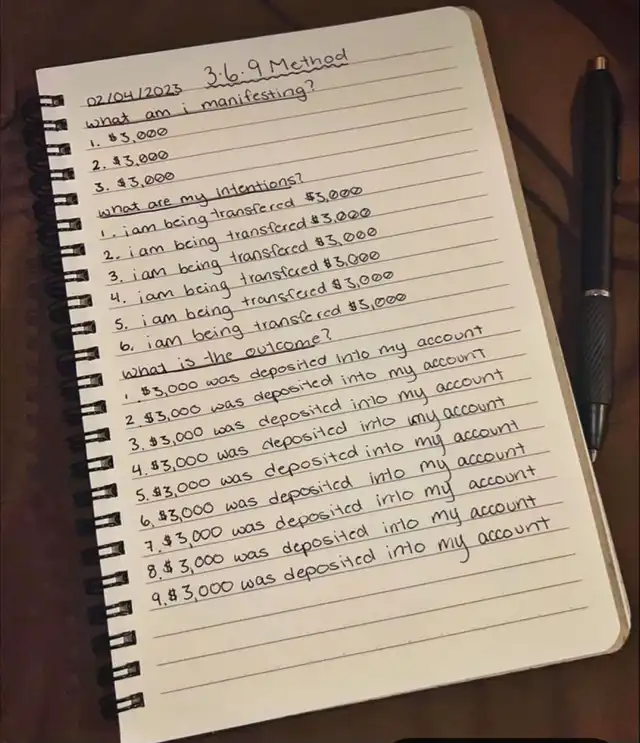 3.6.9 Method
02/04/2023
What am i manifesting?
1. $3,000
2. $3,000
3. $3,000
What are my intentions?
1. i am being transfered $3,000
2. i am being transfered $3,000
3. i am being transfered $3,000
4. i am being transfered $3,000
5. i am being transfered $3,000
6. i am being transfered $3,000
What is the outcome?
1. $3,000 was deposited into my account
2. $3,000 was deposited into my account
3. $3,000 was deposited into my account
4. $3,000 was deposited into my account
5. $3,000 was deposited into my account
6. $3,000 was deposited into my account
7. $3,000 was deposited into my account
8. $3,000 was deposited into my account
9. $3,000 was deposited into my account